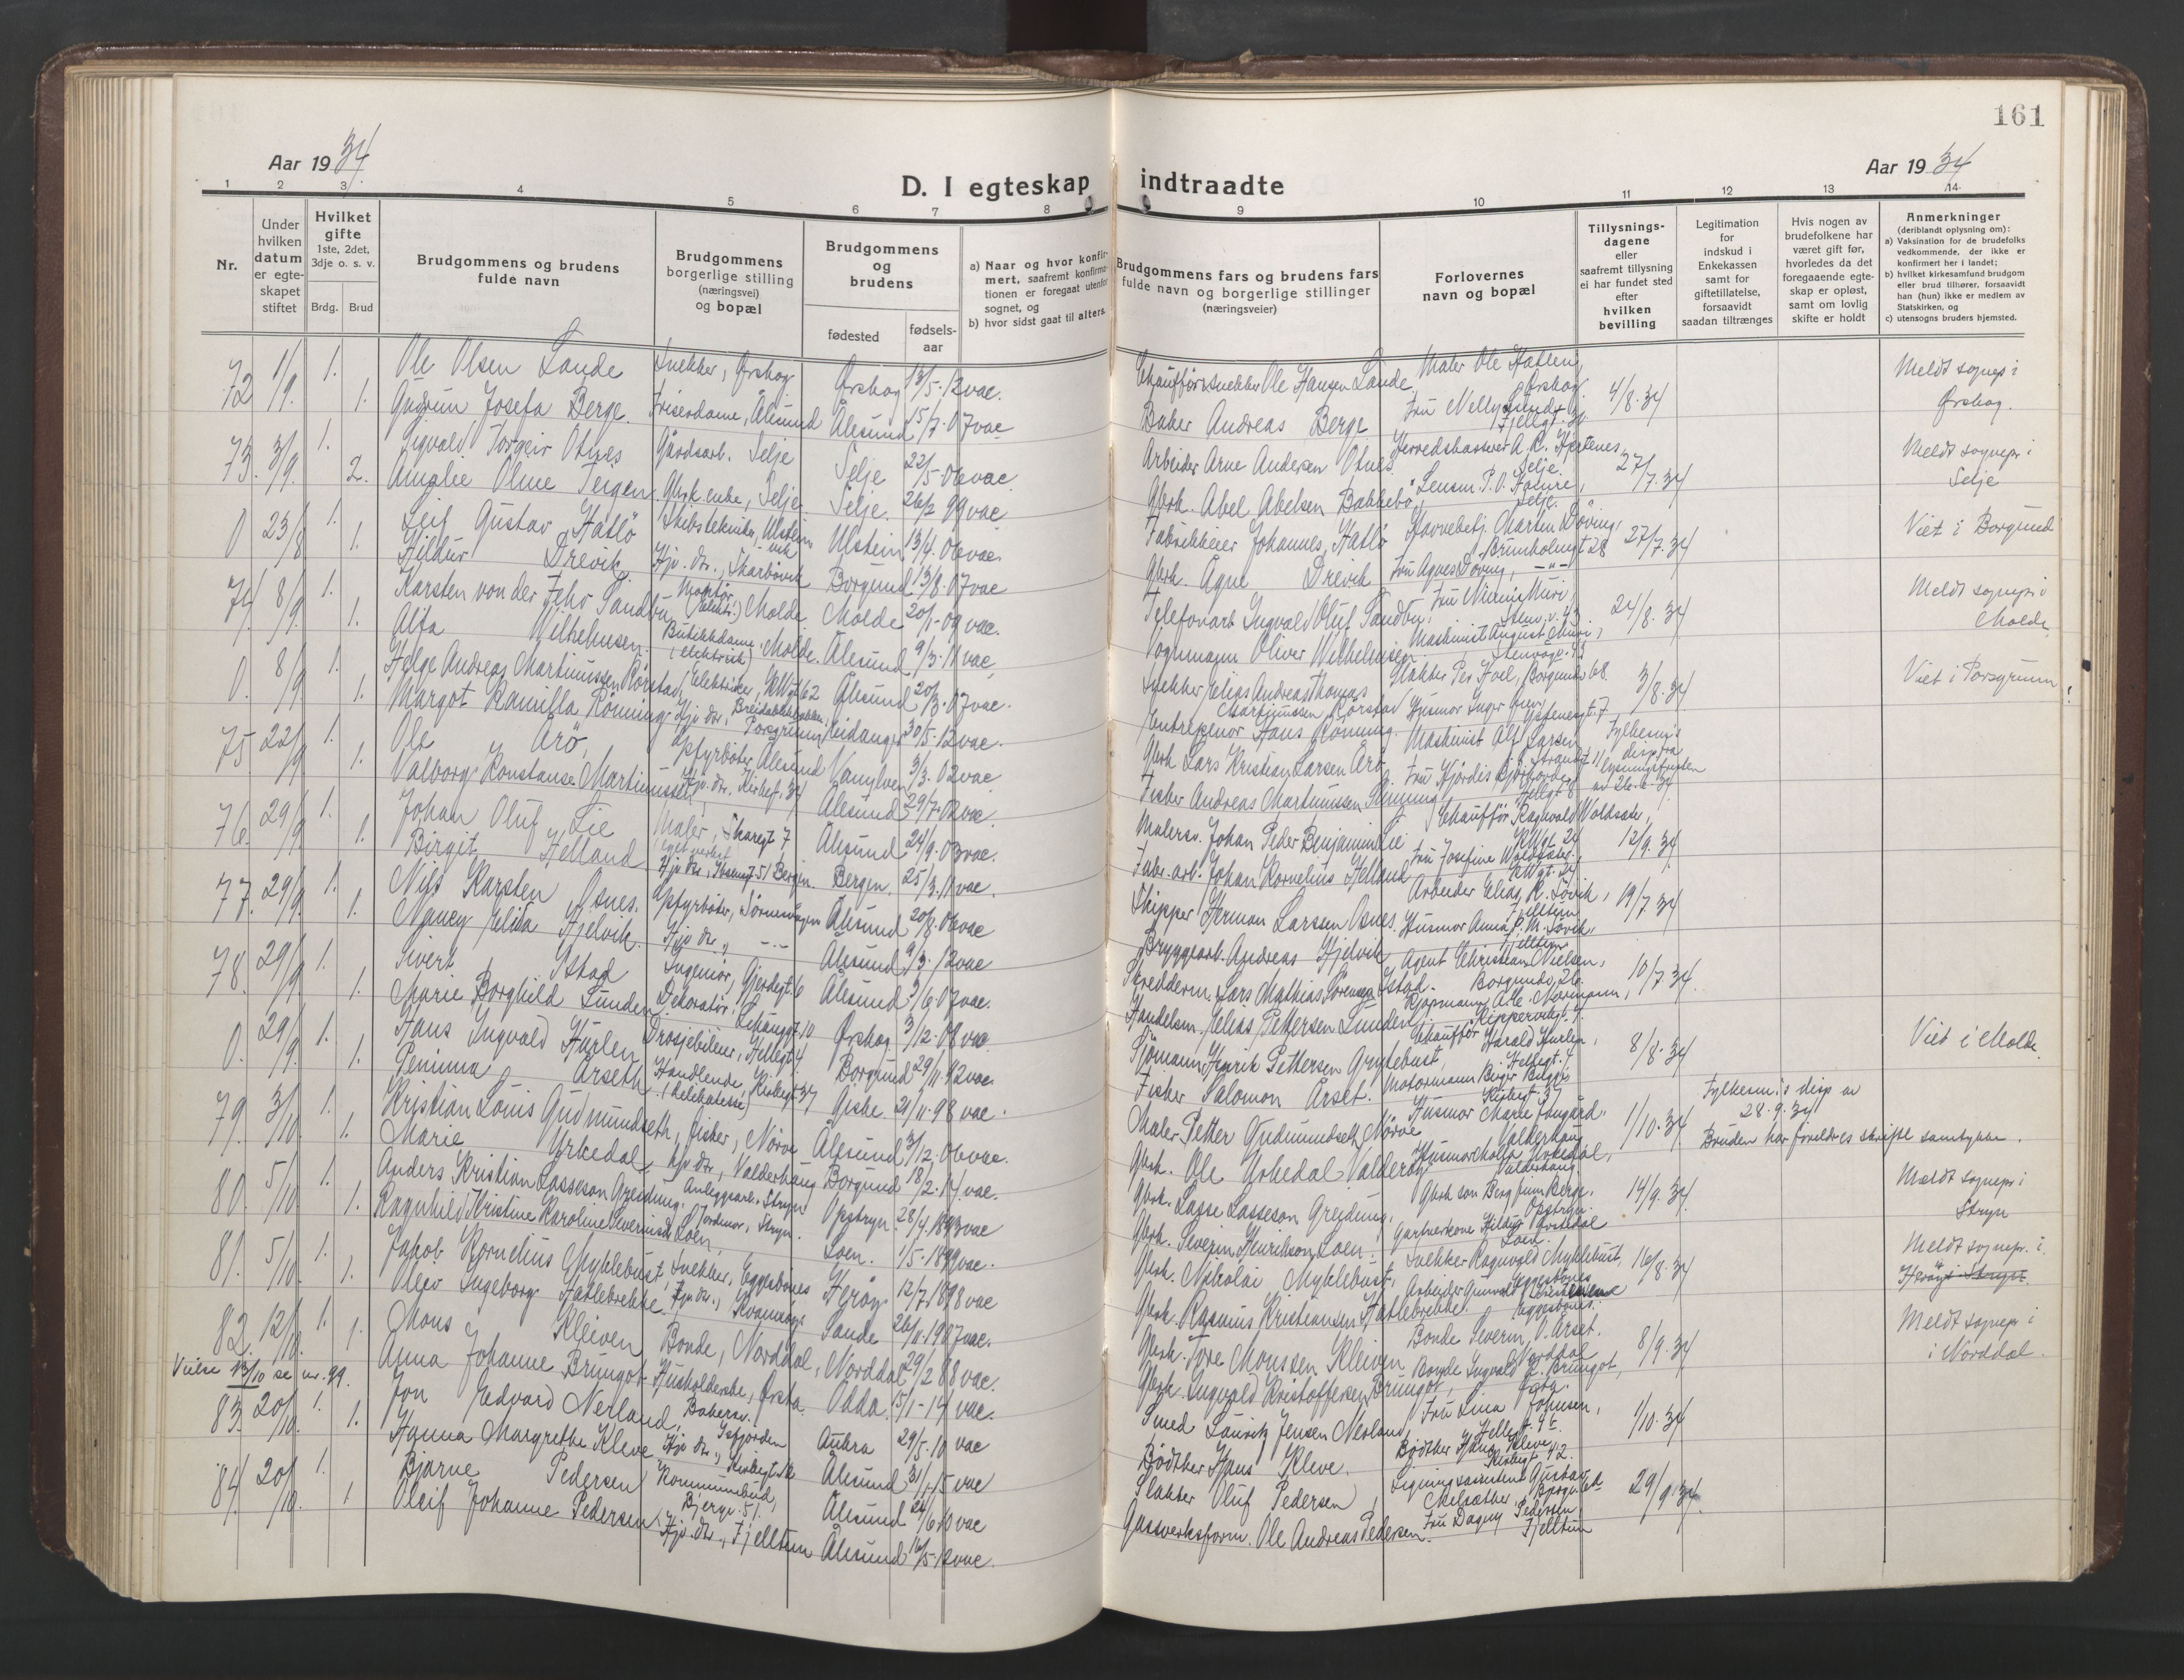 161
Aar 1934
Aar 1934
D. I egteskap indtraadte
1 2 3 4 5 6 7 8 9 10 11 12 13 14
Nr.
Under hvilken datum er egteskapet stiftet
Hvilket gifte
1ste, 2det, 3dje o. s. v.
Brdg. Brud
Brudgommens og brudens fulde navn
Brudgommens borgerlige stilling (næringsvei) og bopæl
Brudgommens og brudens
fødested
fødsels-aar
a) Naar og hvor konfirmert, saafremt konfirmationen er foregaat utenfor sognet, og
b) hvor sidst gaat til alters.
Brudgommens fars og brudens fars fulde navn og borgerlige stillinger (næringsveier)
Forlovernes navn og bopæl
Tillysnings-dagene eller saafremt tillysning ei har fundet sted efter hvilken bevilling
Legitimation for indskud i Enkekassen samt for giftetillatelse, forsaavidt saadan tiltrænges
Hvis nogen av brudefolkene har været gift før, hvorledes da det foregaaende egteskap er opløst, samt om lovlig skifte er holdt
Anmerkninger (deriblandt oplysning om):
a) Vaksination for de brudefolks vedkommende, der ikke er konfirmert her i landet;
b) hvilket kirkesamfund brudgom eller brud tilhører, forsaavidt han (hun) ikke er medlem av Statskirken, og
c) utensogns bruders hjemsted.
72 1/9. 1. Ole Olsen Lande Snekker, Ørskog. Ørskog 13/5-12 vac. Chauffør, snekker Ole Hansen Lande Maler Ole Hatlen, Ørskog. 4/8.34 Meldt sognepr. i Ørskog.
1. Gudrun Josefa Berge. Friserdame, Ålesund Ålesund 15/7.07 vac Baker Andreas Berge Fru Nelly Fjellgt.
73. 3/9. 1. Sigvald Torgeir Otnes Gårdsarb. Selje Selje 22/5-06 vac. Arbeider Arne Andersen Otnes. Herredskasserer Selje 27/7.34 Meldt sognepr. i Selje
2. Amalie Oline Teigen Gbrk. enke, Selje. Selje. 26/2 99 vac Gbrk. Abel Abelsen Bakkebø Lensm. P. O. Selje.
0 23/8 1. Leif Gustav Hatlø Skibstekniker, Ulstein Ulstein 13/4.06 vac. Fabrikkeier Johannes Hatlø Havnebetj. Marten Døving, Brunholmgt 28 27/7.34 Viet i Borgund
1. Hildur Drevik Hj. dtr., Skarbøvik Borgund 13/8.07 vac Gbrk. Agne Drevik Fru Agnes Døving, -"-
74. 8/9. 1. Karsten von der Fehr Sandbu Montør (elektr.) Molde Molde 20/1-09 vac. Telefonarb. Ingvald Oluf Sandbu, Fru Muri, 24/8.34 Meldt sognepr. i Molde
1. Alfa Wilhelmsen. Butikkdame (elektrisk), Molde. Ålesund 9/3-11 vac Vognmann Oliver Wilhelmsen Maskinist August Muri,
0. 8/9 1. Helge Andreas Martinussen Rørstad, Elektriker, KWgt 62 Ålesund 20/3.07 vac. Snekker Elias Andreas Thomas Martinussen Rørstad Slakter Per Hvel, Borgundv. 68. 3/8.34 Viet i Porsgrunn
1. Margot Kamilla Rønning. Hj. dtr., Porsgrunn Eidanger 30/5-12 vac. Entreprenør Hans Rønning. Husmor Inger
75. 22/9 1. Ole Arø, Opfyrbøter, Ålesund Vanylven 3/3.02 vac. Gbrk Lars Kristian Larsen Arø, Maskinist Alf Larsen Fylkesm.'s disp. fra lysningsfristen av 26.6.34
1. Valborg Konstanse Martinussen, Hj. dtr. Kirkegt. 34 Ålesund 29/7-02 vac. Fisker Andreas Martinussen Fru Hjørdis Fjellgt. 8
76. 29/9. 1. Johan Oluf Lie Maler, Skaregt 7 Ålesund 24/9.03 vac. Malersv. Johan Peder Benjamin Lie Chauffør Ragnvald Woldsater, KWgt. 24 12/9.34
1. Birgit Helland Hj. dtr., Ibsensgt 51 Bergen. Bergen. 25/3.11 vac. Fabr. arb. Johan Kornelius Helland Fru Josefine Woldsater, KWgt. 24
77. 29/9. 1. Nils Karsten Osnes. Opfyrbøter, Sørneshagen Ålesund 20/8.06 vac Skipper Herman Larsen Osnes. Arbeider Elias K. Løvik, Fjelltun 19/7.34
1. Nancy Elida Hjelvik. Hj. dtr., -"- Ålesund 9/3-12 vac Bryggearb. Andreas Hjelvik Husmor Anna P. M. Løvik, Fjelltun.
78. 29/9. 1. Sivert Ystad Ingeniør, Gjerdegt. 6 Ålesund 9/6.07 vac. Skredderm. Lars Mathias Sørensen Ystad. Agent Christian Nielsen, Borgundv. 26. 10/7.34
1. Marie Borghild Lunden Dekoratør, Løhaugt. 10 Ørskog 3/12.08 vac. Handelsm. Elias Pettersen Lunden. Kjøpmann Atle Normann, Skippervikgt. 4.
0. 29/9. 1. Hans Ingvald Hurlen Drosjebileier, Hellegt 4 Borgund 29/11.92 vac. Sjømann Henrik Pettersen Grytebust, Chauffør Harald Hurlen, Hellegt. 4 8/8.34 Viet i Molde.
1. Penina Årseth. Handlende, Kirkegt 37 (delikatesse) Giske 21/11-98 vac. Fisker Salomon Årset. Motormann Birger Kirkegt. 37
79. 3/10. 1. Kristian Louis Gudmundseth, fisker, Nørve Ålesund 3/12.06 vac. Maler Petter Gudmundseth, Nørve Husmor Marie Valderhaug 1/10.34 Fylkesm.'s disp av 28.9.34
1. Marie Yrkedal, hj. dtr., Valderhaug Borgund 18/2.14 vac. Gbrk. Ole Yrkedal Valderøy Husmor Yrkedal, Valderhaug. Bruden har foreldres skriftl samtykke.
80. 5/10. 1. Anders Kristian Lasseson Greidung. Anleggsarb. Stryn Opstryn. 28/4.1893 vac Gbrk. Lasse Lasseson Greidung, Gbrk søn Bergfinn Berge, Opstryn. 14/9.34 Meldt sognepr. i Stryn
1. Ragnhild Kristine Karoline Severinsd. Loen, Jordmor, Stryn. Loen. 1/5-1899 vac. Gbrk. Severin Henrikson Loen. Gartnerkone Hilda Loen.
81. 5/10. 1. Jakob Kornelius Myklebust, Snekker, Eggesbønes Herøy 12/7.1898 vac Gbrk. Nikolai Myklebust, Snekker Ragnvald Myklebust, Eggesbønes 16/8.34 Meldt sognepr. i Herøy
1. Olev Ingeborg Hatlebrekke. Hj. dtr., Kvamsøy Sande 26/11.1907 vac. Gbrk. Rasmus Kristiansen Hatlebrekke. Arbeider Eggesbønes.
82. 12/10. 1. Mons Kleiven Bonde, Norddal, Norddal 29/2 88 vac. Gbrk. Tore Monssen Kleiven Bonde Severin O. Årset. Norddal 8/9.34 Meldt sognepr i i Norddal.
1. Anna Johanne Brungot Husholderske, Ørsta. Odda. 15/1-14 vac. Gbrk. Ingvald Kristoffersen Brungot, Bonde Ingvald K. Brungot,
Vielse 13/10 se nr. 99.
83. 20/10. 1. Jon Edvard Nerland, Bakersv. Isfjorden Aukra 29/5.10 vac Smed Lauritz Jensen Nerland, Fru Lina Johnsen, Hellegt. 1/10.34
1. Hanna Margrethe Kleve Hj. dtr., Kirkegt. Ålesund 31/1-15 vac Bødtker Hans Kleve. Bødtker Hans Kleve, Kirkegt. 42.
84. 20/10. 1. Bjarne Pedersen Kommunebud, Bjergv. 51. Ålesund 24/6.10 vac Slakter Oluf Pedersen Ligningsassistent Gustav 29/9.34
1 Oleif Johanne Pedersen Hj. dtr., Fjelltun Ålesund 16/5-12 vac. Gassverksform. Ole Andreas Pedersen. Fru Dagny Pedersen Fjelltun